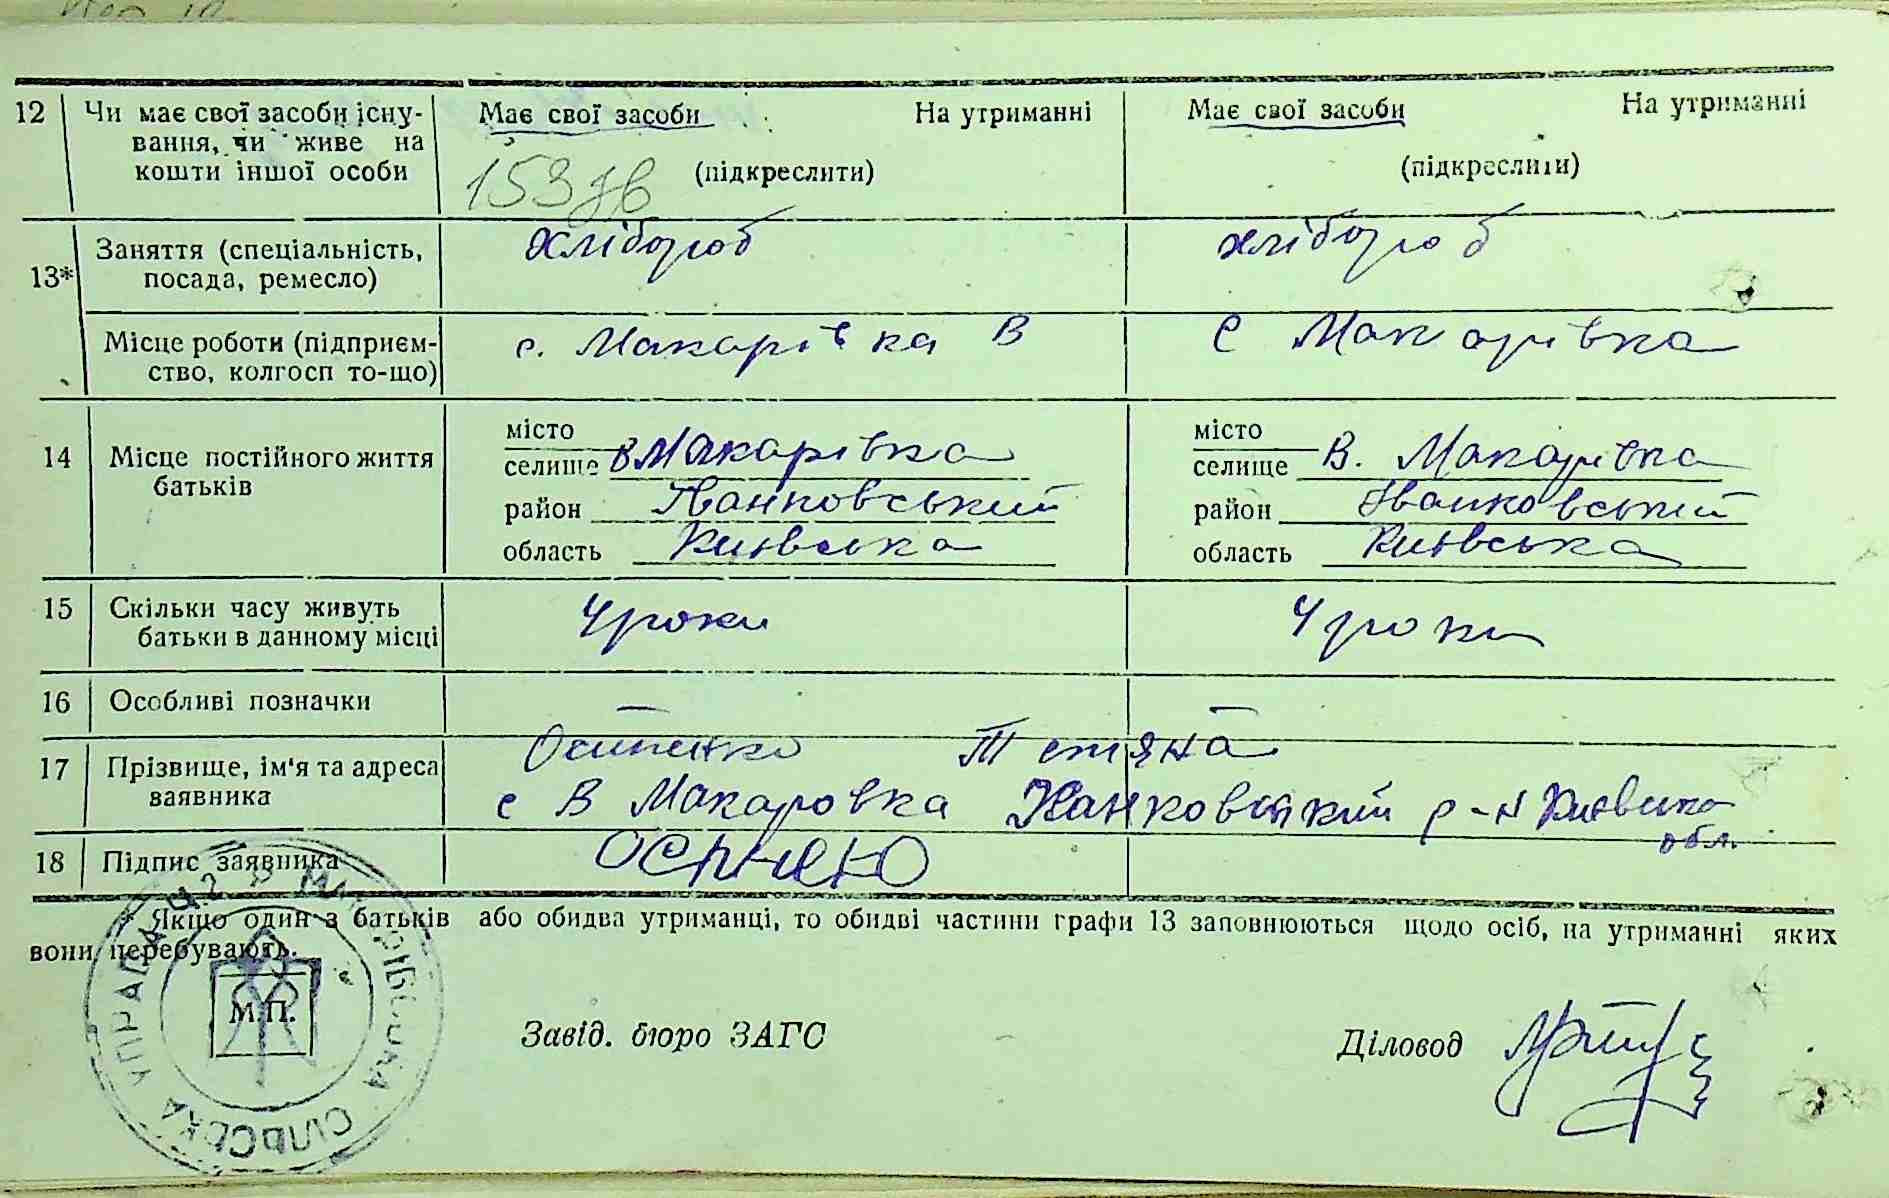 12 Чи має свої засоби існу- Має свої засоби На утриманні Має свої засоби На утриманні
вання, чи живе на
кошти іншої особи (підкреслити) (підкреслити)
153
Заняття (спеціальність, хлібороб хлібороб
13* посада, ремесло)
Місце роботи (підприєм- с. Макарівка В С Макарівка
ство, колгосп то-що)
місто місто
14 Місце постійного життя селище В Макарівка селище В. Макарівка
батьків район Іванковський район Іванковський
область Київська область Київська
15 Скільки часу живуть 4 роки 4 роки
батьки в данному місці
16 Особливі позначки — —
Осипенко Тетяна
17 Прізвище, ім'я та адреса
заявника с В Макаровка р-н Київська
обл.
18 Підпис заявника
* Якщо один з батьків або обидва утриманці, то обидві частини графи 13 заповнюються щодо осіб, на утриманні яких
вони перебувають.
М.П.
СІЛЬСЬКА УПРАВА
Завід. бюро ЗАГС Діловод